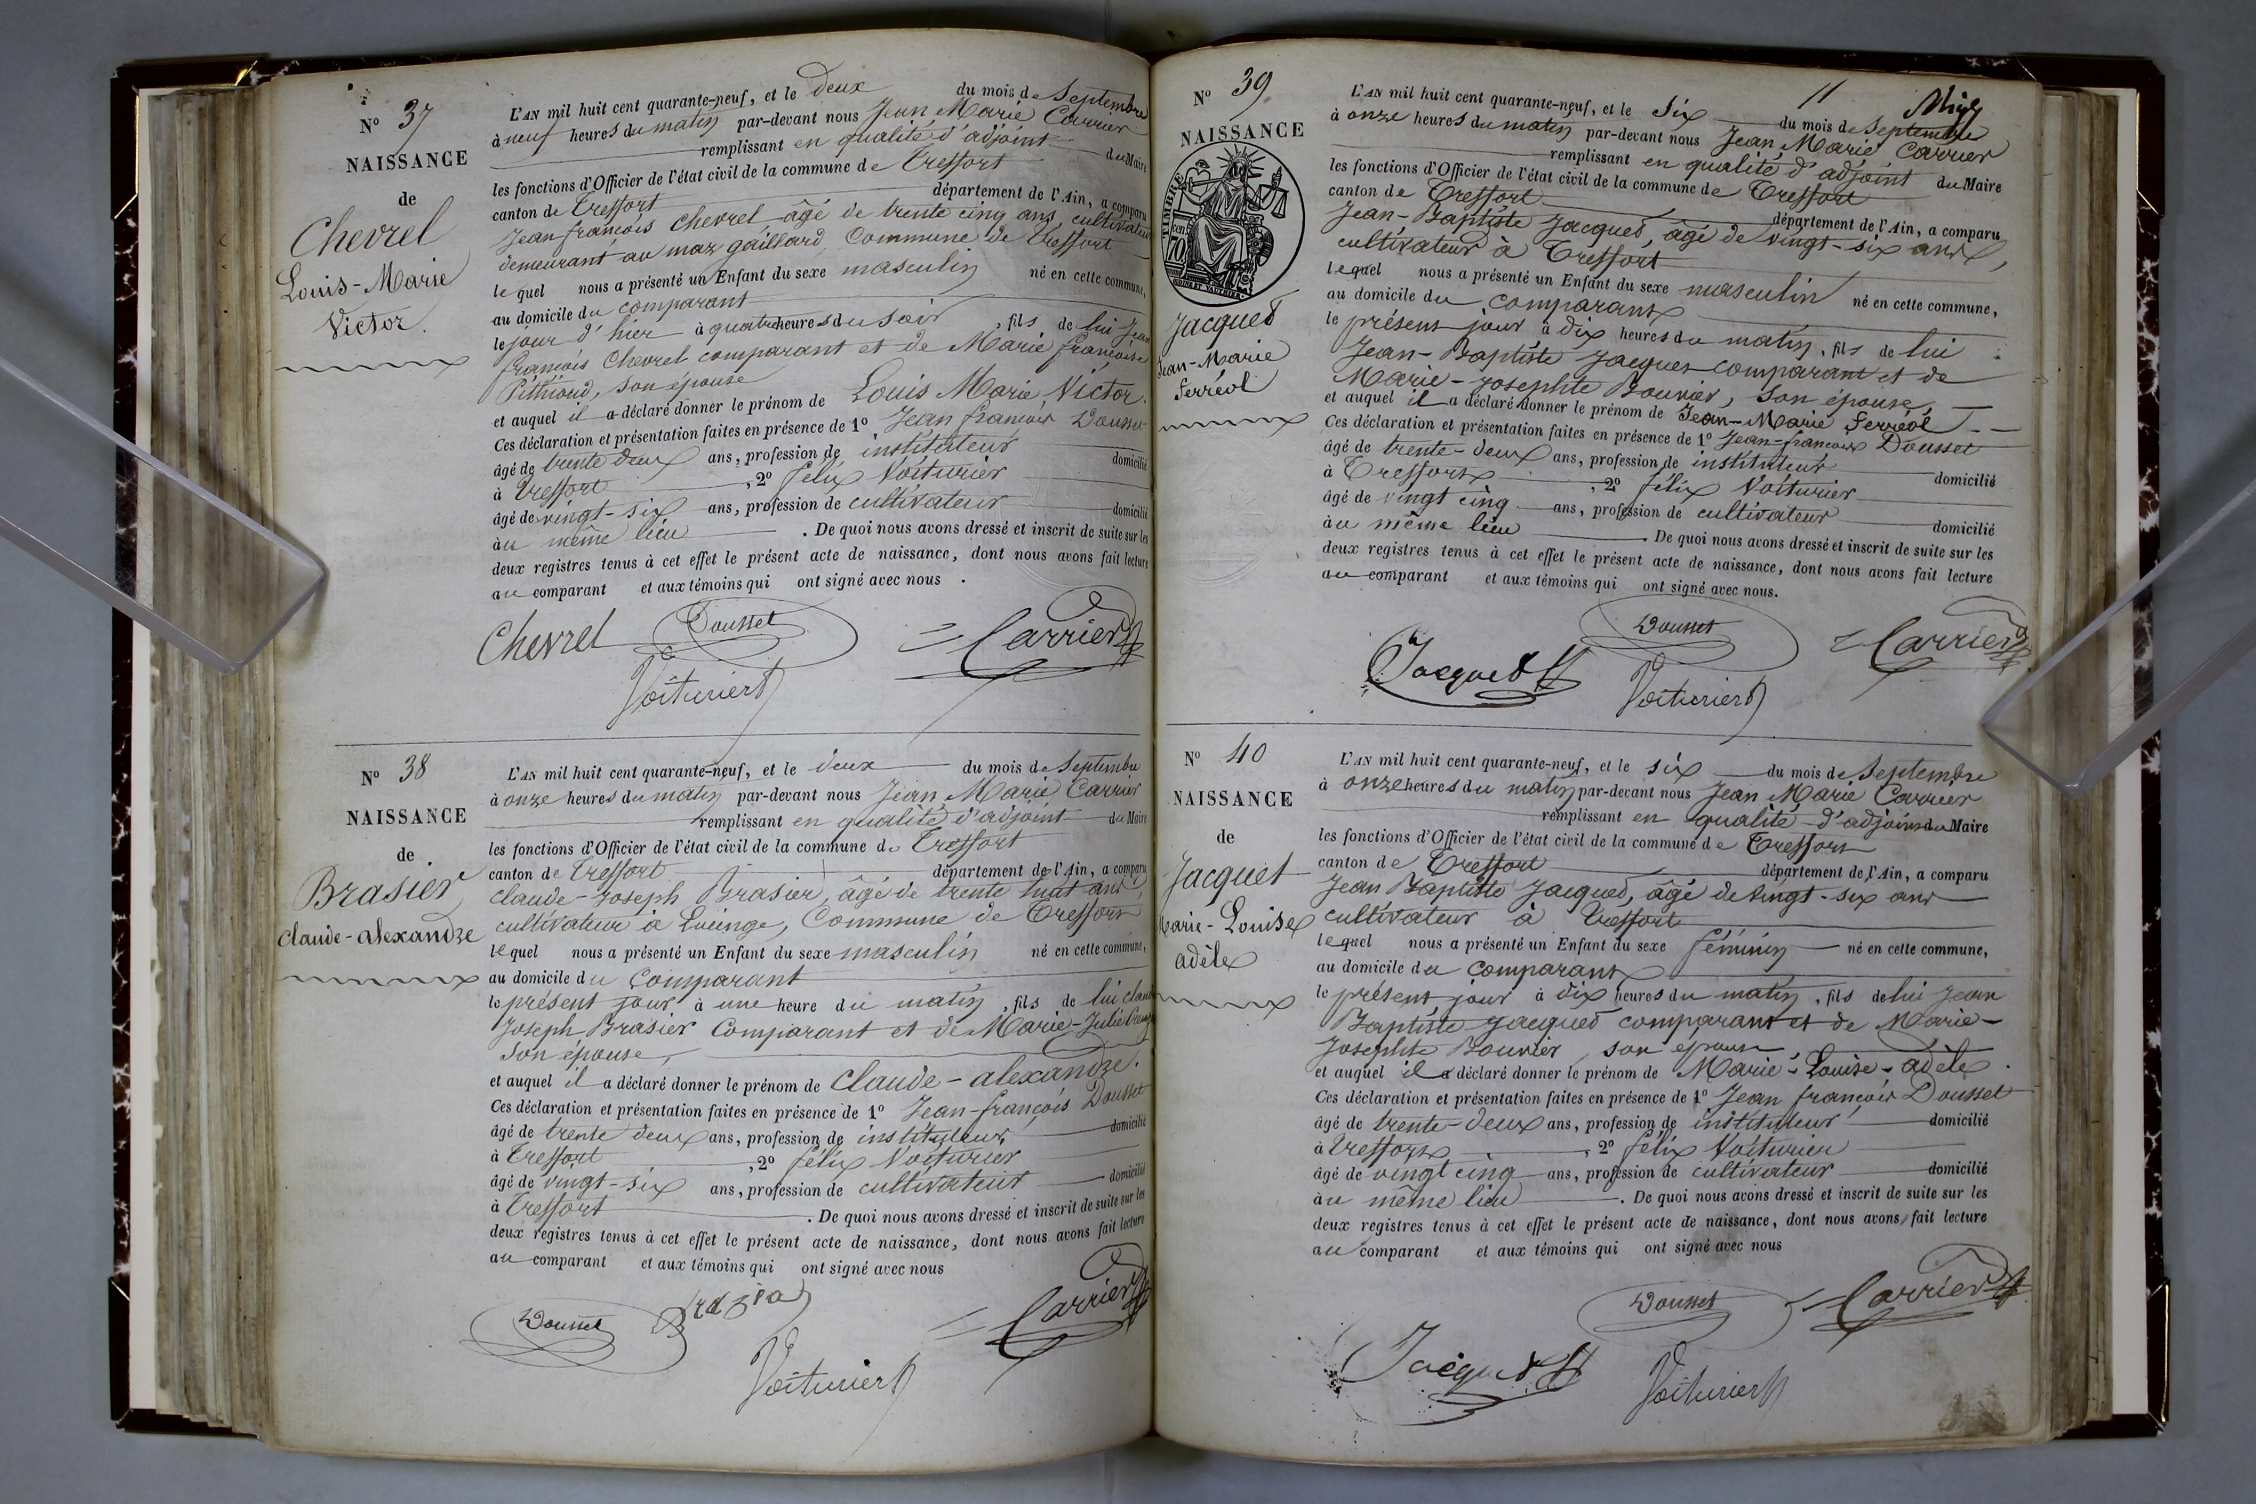 N° 37
NAISSANCE
de
Chevrel
Louis-Marie
Victor.
L'AN mil huit cent quarante-neuf, et le deux du mois de Septembre
à neuf heures du matin par-devant nous Jean Marie Carrier
remplissant en qualité d'adjoint du Maire
les fonctions d'Officier de l'état civil de la commune de Treffort
canton de Treffort département de l'Ain, a comparu
Jean françois Chevrel âgé de trente cinq ans, cultivateur
demeurant au maz gaillard, Commune de Treffort
lequel nous a présenté un Enfant du sexe masculin né en cette commune,
au domicile du comparant
le jour d'hier à quatre heures du soir, fils de lui Jean
françois Chevrel comparant et de Marie françoise
son épouse
et auquel il a déclaré donner le prénom de Louis Marie Victor.
Ces déclaration et présentation faites en présence de 1° Jean françois Dousset
âgé de trente deux ans, profession de instituteur domicilié
à Treffort, 2° félix Voiturier
âgé de vingt-six ans, profession de cultivateur domicilié
au même lieu. De quoi nous avons dressé et inscrit de suite sur les
deux registres tenus à cet effet le présent acte de naissance, dont nous avons fait lecture
au comparant et aux témoins qui ont signé avec nous.
Chevrel Dousset Carrier
Voiturier
N° 38
NAISSANCE
de
Brasier
Claude-alexandre
L'AN mil huit cent quarante-neuf, et le deux du mois de Septembre
à onze heures du matin par-devant nous Jean Marie Carrier
remplissant en qualité d'adjoint du Maire
les fonctions d'Officier de l'état civil de la commune de Treffort
canton de Treffort département de l'Ain, a comparu
Claude-Joseph Brasier, âgé de trente huit ans,
cultivateur à Lucinge, Commune de Treffort
lequel nous a présenté un Enfant du sexe masculin né en cette commune,
au domicile du Comparant
le présent jour à une heure du matin, fils de lui claude
Joseph Brasier Comparant et de Marie-Julie
son épouse,
et auquel il a déclaré donner le prénom de Claude-alexandre.
Ces déclaration et présentation faites en présence de 1° Jean-françois Dousset
âgé de trente deux ans, profession de instituteur domicilié
à Treffort, 2° félix Voiturier
âgé de vingt-six ans, profession de cultivateur domicilié
à Treffort. De quoi nous avons dressé et inscrit de suite sur les
deux registres tenus à cet effet le présent acte de naissance, dont nous avons fait lecture
au comparant et aux témoins qui ont signé avec nous
Dousset Carrier
Voiturier
11
N° 39
NAISSANCE
TIMBRE
70
Jacquet
Jean-Marie
ferréol
L'AN mil huit cent quarante-neuf, et le Six du mois de Septembre
à onze heures du matin par-devant nous Jean Marie Carrier
remplissant en qualité d'adjoint du Maire
les fonctions d'Officier de l'état civil de la commune de Treffort
canton de Treffort département de l'Ain, a comparu
Jean-Baptiste Jacquet, âgé de vingt-six ans,
cultivateur à Treffort
lequel nous a présenté un Enfant du sexe masculin né en cette commune,
au domicile du comparant
le présent jour à dix heures du matin, fils de lui
Jean-Baptiste Jacquet comparant et de
Marie-Josephte Bouvier, son épouse,
et auquel il a déclaré donner le prénom de Jean-Marie ferréol
Ces déclaration et présentation faites en présence de 1° Jean-françois Dousset
âgé de trente-deux ans, profession de instituteur domicilié
à Treffort, 2° félix Voiturier
âgé de vingt cinq ans, profession de cultivateur domicilié
au même lieu. De quoi nous avons dressé et inscrit de suite sur les
deux registres tenus à cet effet le présent acte de naissance, dont nous avons fait lecture
au comparant et aux témoins qui ont signé avec nous.
Jacquet Dousset Carrier
Voiturier
N° 40
NAISSANCE
de
Jacquet
Marie-Louise
adèle
L'AN mil huit cent quarante-neuf, et le six du mois de Septembre
à onze heures du matin par-devant nous Jean Marie Carrier
remplissant en qualité d'adjoint du Maire
les fonctions d'Officier de l'état civil de la commune de Treffort
canton de Treffort département de l'Ain, a comparu
Jean Baptiste Jacquet, âgé de vingt-six ans
cultivateur à Treffort
lequel nous a présenté un Enfant du sexe féminin né en cette commune,
au domicile du comparant
le présent jour à dix heures du matin, fils de lui Jean
Baptiste Jacquet comparant et de Marie-
Josephte Bouvier, son épouse
et auquel il a déclaré donner le prénom de Marie-Louise-adèle.
Ces déclaration et présentation faites en présence de 1° Jean françois Dousset
âgé de trente-deux ans, profession de instituteur domicilié
à Treffort, 2° félix Voiturier
âgé de vingt cinq ans, profession de cultivateur domicilié
au même lieu. De quoi nous avons dressé et inscrit de suite sur les
deux registres tenus à cet effet le présent acte de naissance, dont nous avons fait lecture
au comparant et aux témoins qui ont signé avec nous
Dousset Carrier
Jacquet Voiturier